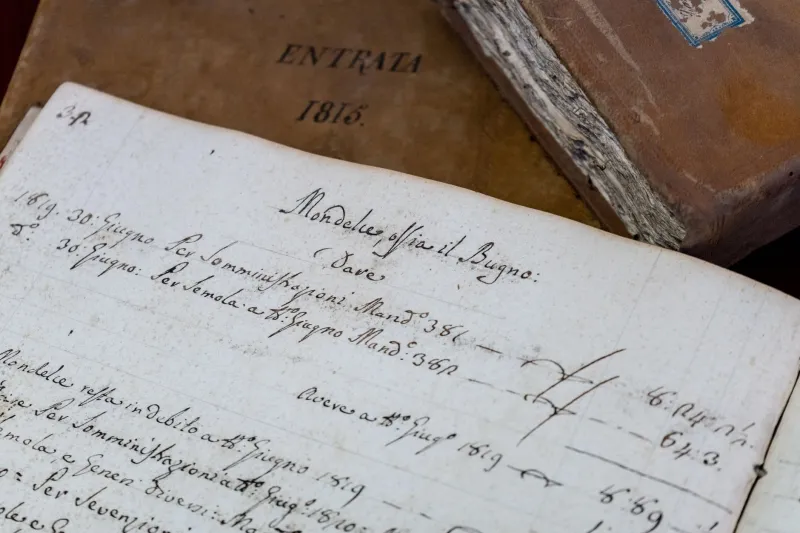 ENTRATA
1815.
Mondelce, ossia il Bugno:
Dare
1819: 30: Giugno Per Somministrazioni Mand.º 381
d.º 30: Giugno: Per Semola: a tt.º Giugno Mand.º: 382
64: 3.
Avere a tt.º Giug.º 1819 8: 89
Mondelce resta in debito a tt.º Giugno 1819
Per Somministrazioni a tt.º Giug.º 1820
Semola e Generi diversi:
Per Sovenzioni